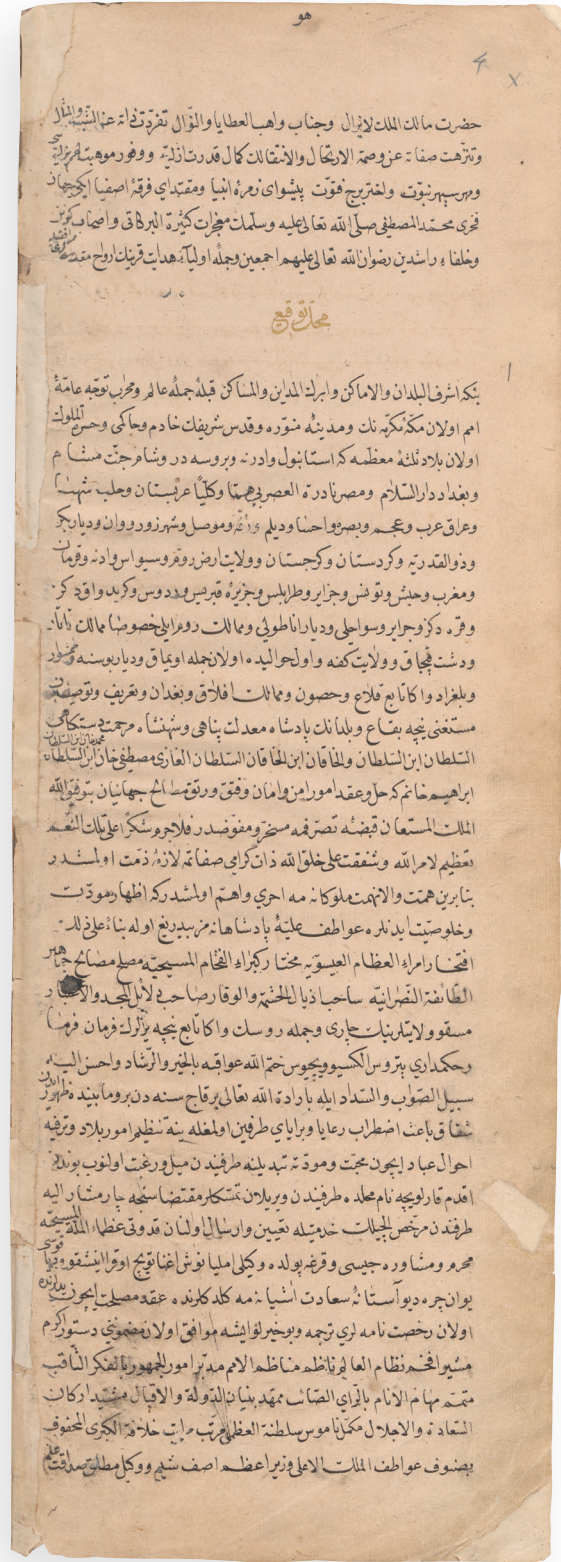 هو
حضرت مالك الملك لايزال وجناب واهب العطايا والنوال تفردت ذاته عن الشبيه والمثال
وتنزهت صفاته عن وصمة الارتحال والانتقالك كمال قدرت ازليه ووفور موهبت
ومهر سپهر نبوت واختر برج فتوت پيشواى زمرۀ انبيا ومقتداى فرقۀ اصفيا ايكى جهان
فخرى محمد المصطفى صلى الله تعالى عليه وسلمك معجزات كثيرة البركاتى واصحاب كزين
وخلفاء راشدين رضوان الله تعالى عليهم اجمعين وجملۀ اوليانك هدايت قرينك ارواح مقدسه
محل توقيع
بنكه اشرف البلدان والاماكن وابرك المداين والمساكن قبلۀ جملۀ عالم ومحراب توجه عامۀ
امم اولان مكۀ مكرمه نك ومدينۀ منوره وقدس شريفك خادم وحاكمى وحسرة الملوك
اولان بلاد ثلثۀ معظمه كه استانبول وادرنه وبروسه در وشام جنت مشام
وبغداد دار السلام ومصر نادرة العصر بى همتا وكليا عربستان وحلب شهبا
وعراق عرب وعجم وبصره واحسا وديلم ورقه وموصل وشهرزور ووان وديار بكر
وذو القدريه وكردستان وكرجستان وولايت ارض روم وسيواس وادنه وقرمان
ومغرب وحبش وتونس وجزاير وطرابلس وجزيرۀ قبريس ورودوس وكريد واق دكز
وقره دكز وجزاير وسواحلى وديار اناطولى وممالك روم ايلى خصوصا ممالك تاتار
ودشت قپچاق وولايت كفه واول حواليده اولان جمله اويماق وديار بوسنه
وبلغراد واكا تابع قلاع وحصون وممالك افلاق وبغدان وتعريف وتوصيفدن
مستغنى نيچه بقاع وبلدانك پادشاه معدلت پناهى وشهنشاه مرحمت دستكاهى
السلطان ابن السلطان والخاقان ابن الخاقان السلطان الغازى مصطفى خان ابن السلطان
محمد خان ابن السلطان
ابراهيم خانم كه حل وعقد امور امن وامان وفتق ورتق مصالح جهانيان بتوفيق الله
الملك المستعان قبضۀ تصرفمه مسخر ومفوضدر فلا جرم شكرا على تلك النعم
تعظيم لامر الله وشفقت على خلق الله ذات كرامى صفاتمه لازمۀ ذمت اولمشدر
بنابرين همت والانهمت ملوكانه مه احرى واهم اولمشدركه اظهار مودت
وخلوصيت ايدنلره عواطف عليۀ پادشاهانه مز بيدريغ اوله بناء على ذلك
افتخار امراء العظام العيسويه مختار كبراء الفخام المسيحيه مصلح مصالح جماهير
الطائفة النصرانيه ساحب اذيال الحشمة والوقار صاحب دلائل المجد والاعتبار
مسقو ولايتلرينك چارى وجمله روسك واكا تابع نيچه يرلرك فرمان فرما
وحكمدارى پتروس الكسيوويچيوس ختم الله عواقبه بالخير والرشاد واحسن اليه
سبيل الصواب والسداد ايله بارادة الله تعالى بر قاچ سنه دن برو مابينده ظهور ايدن
شقاق باعث اضطراب رعايا وبراياى طرفين اولمغله ينه تنظيم امور بلاد وترفيه
احوال عباد ايچون محبت ومودته تبديلنه طرفيندن ميل ورغبت اولنوب بوندن
اقدم قارلويچه نام محلده طرفيندن ويريلان تمسكلر مقتضاسنجه چار مشار اليه
طرفندن مرخص ايلچيلك خدمتيله تعيين وارسال اولنان قدوتى عظماء الملة المسيحيه
محرم ومشاوره جيسى وقرغه پولده وكيلى امليانوش اغناتويچ اوقراينسقوو ودياق قوسى
يوان چره ديو آستانۀ سعادت اشيانه مه كلدكلرنده عقد مصلحت ايچون يدلرنده
اولان رخصت نامه لرى ترجمه وبو خير لو ايشه موافق اولان مضمونى دستور اكرم
مشير افخم نظام العالم ناظم مناظم الامم مدبر امور الجمهور بالفكر الثاقب
متمم مهام الانام بالراى الصائب ممهد بنيان الدولة والاقبال مشيد اركان
السعادة والاجلال مكمل ناموس سلطنة العظمى مرتب مراتب خلافة الكبرى المحفوف
بصنوف عواطف الملك الاعلى وزير اعظم آصف شيم ووكيل مطلق صداقت علم